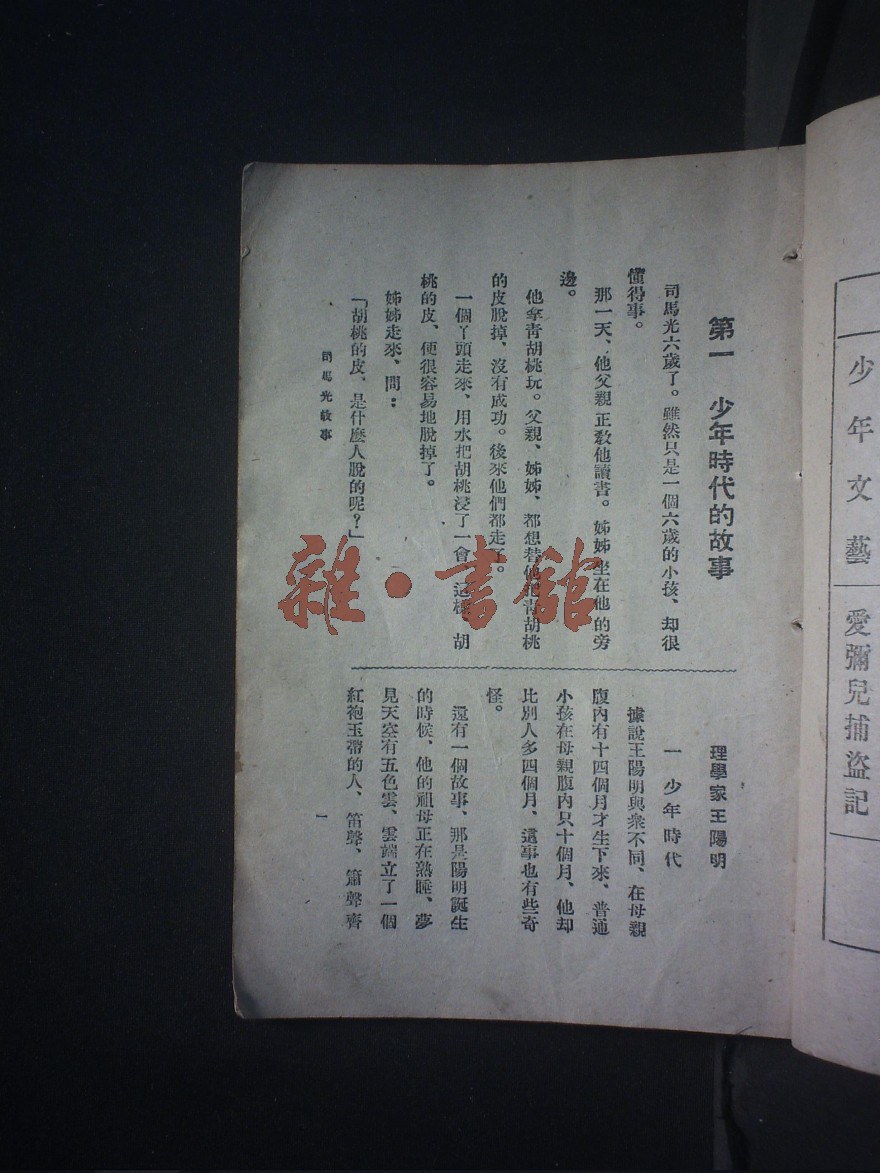 第一　少年時代的故事
司馬光六歲了。雖然只是一個六歲的小孩、却很
懂得事。
那一天、他父親正教他讀書。姊姊坐在他的旁
邊。
他拿青胡桃玩。父親、姊姊、都想替他把青胡桃
的皮脫掉、沒有成功。後來他們都走了。
一個丫頭走來、用水把胡桃浸了一會、這樣、胡
桃的皮、便很容易地脫掉了。
姊姊走來、問：
「胡桃的皮、是什麼人脫的呢？」
司馬光故事
理學家王陽明
一　少年時代
據說王陽明與衆不同、在母親
腹內有十四個月才生下來、普通
小孩在母親腹內只十個月、他却
比別人多四個月、這事也有些奇
怪。
還有一個故事、那是陽明誕生
的時候、他的祖母正在熟睡、夢
見天空有五色雲、雲端立了一個
紅袍玉帶的人、笛聲、簫聲齊
一
少年文藝
愛彌兒捕盜記
雜·書館